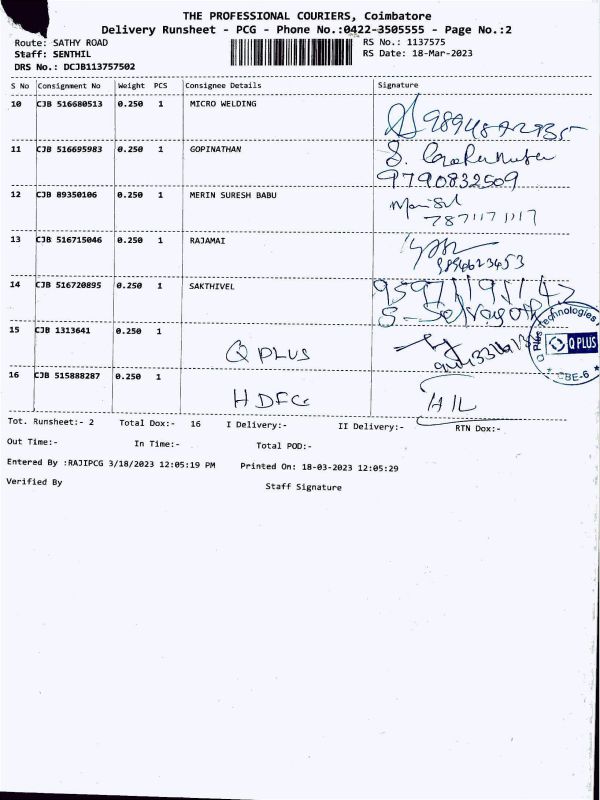 THE PROFESSIONAL COURIERS, Coimbatore
Delivery Runsheet - PCG - Phone No.:0422-3505555 - Page No.:2
Route: SATHY ROAD RS No.: 1137575
Staff: SENTHIL RS Date: 18-Mar-2023
DRS No.: DCJB113757502
S No Consignment No Weight PCS Consignee Details Signature
10 CJB 516680513 0.250 1 MICRO WELDING
11 CJB 516695983 0.250 1 GOPINATHAN S.
9790832509
12 CJB 89350106 0.250 1 MERIN SURESH BABU
7871171117
13 CJB 516715046 0.250 1 RAJAMAI
9894623453
14 CJB 516720895 0.250 1 SAKTHIVEL
15 CJB 1313641 0.250 1
Q PLUS
Q Plus Technologies
Q PLUS
* CBE-6 *
16 CJB 515888287 0.250 1
HDFC
Tot. Runsheet:- 2 Total Dox:- 16 I Delivery:- II Delivery:- RTN Dox:-
Out Time:- In Time:- Total POD:-
Entered By :RAJIPCG 3/18/2023 12:05:19 PM Printed On: 18-03-2023 12:05:29
Verified By Staff Signature